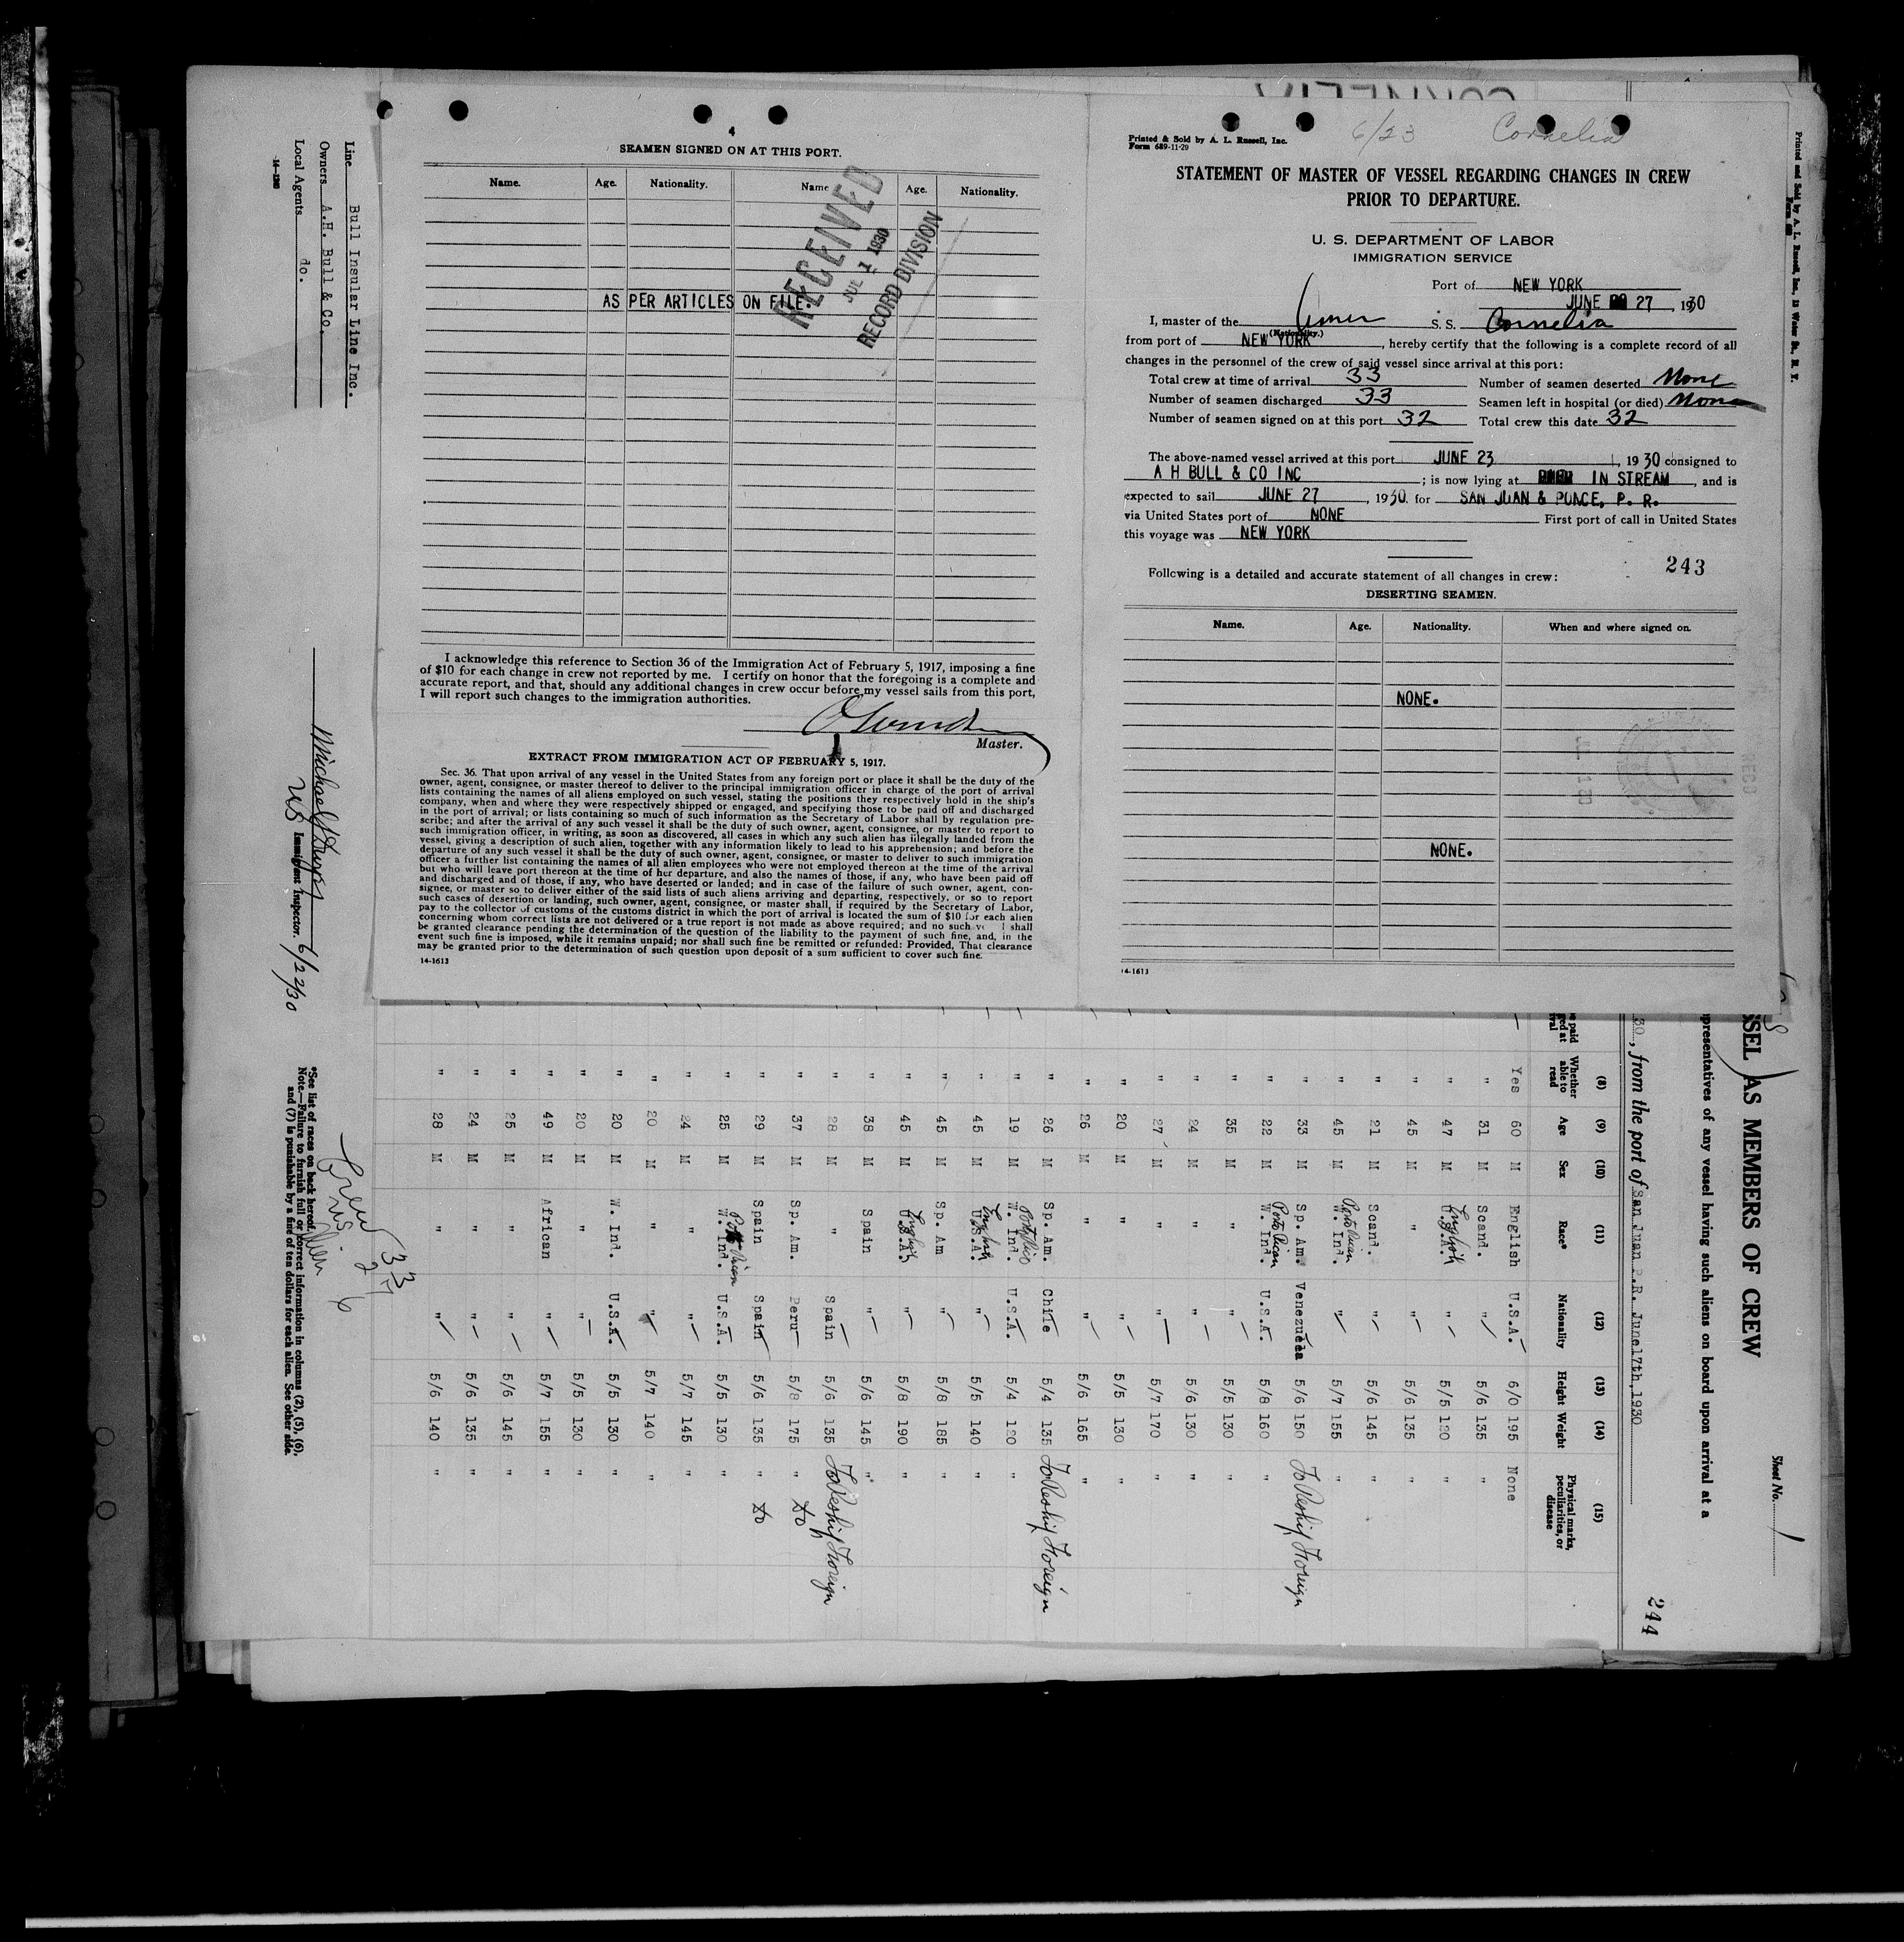 4
SEAMEN SIGNED ON AT THIS PORT.
Name. Age. Nationality. Name Age. Nationality.
AS PER ARTICLES ON FILE.
RECEIVED
JUL 1 1930
RECORD DIVISION
I acknowledge this reference to Section 36 of the Immigration Act of February 5, 1917, imposing a fine
of $10 for each change in crew not reported by me. I certify on honor that the foregoing is a complete and
accurate report, and that, should any additional changes in crew occur before my vessel sails from this port,
I will report such changes to the immigration authorities.
Master.
EXTRACT FROM IMMIGRATION ACT OF FEBRUARY 5, 1917.
Sec. 36. That upon arrival of any vessel in the United States from any foreign port or place it shall be the duty of the
owner, agent, consignee, or master thereof to deliver to the principal immigration officer in charge of the port of arrival
lists containing the names of all aliens employed on such vessel, stating the positions they respectively hold in the ship's
company, when and where they were respectively shipped or engaged, and specifying those to be paid off and discharged
in the port of arrival; or lists containing so much of such information as the Secretary of Labor shall by regulation pre-
scribe; and after the arrival of any such vessel it shall be the duty of such owner, agent, consignee, or master to report to
such immigration officer, in writing, as soon as discovered, all cases in which any such alien has illegally landed from the
vessel, giving a description of such alien, together with any information likely to lead to his apprehension; and before the
departure of any such vessel it shall be the duty of such owner, agent, consignee, or master to deliver to such immigration
officer a further list containing the names of all alien employees who were not employed thereon at the time of the arrival
but who will leave port thereon at the time of her departure, and also the names of those, if any, who have been paid off
and discharged and of those, if any, who have deserted or landed; and in case of the failure of such owner, agent, con-
signee, or master so to deliver either of the said lists of such aliens arriving and departing, respectively, or so to report
such cases of desertion or landing, such owner, agent, consignee, or master shall, if required by the Secretary of Labor,
pay to the collector of customs of the customs district in which the port of arrival is located the sum of $10 for each alien
concerning whom correct lists are not delivered or a true report is not made as above required; and no such ve l shall
be granted clearance pending the determination of the question of the liability to the payment of such fine, and, in the
event such fine is imposed, while it remains unpaid; nor shall such fine be remitted or refunded: Provided, That clearance
may be granted prior to the determination of such question upon deposit of a sum sufficient to cover such fine.
14-1613
6/23 Cornelia
Printed & Sold by A. L. Russell, Inc.
Form 689-11-29
STATEMENT OF MASTER OF VESSEL REGARDING CHANGES IN CREW
PRIOR TO DEPARTURE.
U. S. DEPARTMENT OF LABOR
IMMIGRATION SERVICE
Port of NEW YORK
JUNE 27, 1930
I, master of the Amer S. S. Cornelia
(Nationality.)
from port of NEW YORK, hereby certify that the following is a complete record of all
changes in the personnel of the crew of said vessel since arrival at this port:
Total crew at time of arrival 33 Number of seamen deserted None
Number of seamen discharged 33 Seamen left in hospital (or died) None
Number of seamen signed on at this port 32 Total crew this date 32
The above-named vessel arrived at this port JUNE 23, 1930 consigned to
A H BULL & CO INC; is now lying at IN STREAM, and is
expected to sail JUNE 27, 1930. for SAN JUAN & PONCE, P. R.
via United States port of NONE First port of call in United States
this voyage was NEW YORK
243
Following is a detailed and accurate statement of all changes in crew:
DESERTING SEAMEN.
Name. Age. Nationality. When and where signed on.
NONE.
NONE.
14-1613
Printed and Sold by A. L. Russell, Inc., 15 Water St., N. Y.
Sheet No. 1
SSEL AS MEMBERS OF CREW
presentatives of any vessel having such aliens on board upon arrival at a
30, from the port of San Juan P.R. June 17th, 1930
244
(8) (9) (10) (11) (12) (13) (14) (15)
Whether able to read Age Sex Race* Nationality Height Weight Physical marks, peculiarities, or disease
Yes 60 M English U.S.A. 6/0 195 None
" 31 M Scand. " 5/6 135 "
" 47 M U.S.A. English " 5/5 120 "
" 45 M " " 5/6 135 "
" 21 M Scand. " 5/6 145 "
" 45 M W. Ind. Porto Rican " 5/7 155 "
" 33 M Sp. Am. Venezuela 5/6 150 To Reship Foreign
" 22 M W. Ind. Porto Rican U.S.A. 5/8 160 "
" 35 M " " 5/5 130 "
" 24 M " " 5/6 130 "
" 27 M " " 5/7 170 "
" 20 M " " 5/5 130 "
" 26 M " " 5/6 165 "
" 26 M Sp. Am. Chile 5/4 135 To Reship Foreign
" 19 M W. Ind. U.S.A. 5/4 120 "
" 45 M U.S.A. English " 5/5 140 "
" 45 M Sp. Am " 5/8 185 "
" 45 M U.S.A. English " 5/8 190 "
" 38 M Spain " 5/6 145 "
" 28 M " Spain 5/6 135 To Reship Foreign
" 37 M Sp. Am. Peru 5/8 175 " do
" 29 M Spain Spain 5/6 135 " do
" 25 M W. Ind. Porto Rican U.S.A. 5/5 130 "
" 24 M " " 5/7 145 "
" 20 M " " 5/7 140 "
" 20 M W. Ind. U.S.A. 5/5 130 "
" 20 M " " 5/5 130 "
" 49 M African " 5/7 155 "
" 25 M " " 5/6 145 "
" 24 M " " 5/6 135 "
" 28 M " " 5/6 140 "
Line Bull Insular Line Inc.
Owners A.H. Bull & Co.
Local Agents do.
Immigrant Inspector. 6/22/30
Crew 33
*See list of races on back hereof.
Note.—Failure to furnish full or correct information in columns (2), (5), (6),
and (7) is punishable by a fine of ten dollars for each alien. See other side.